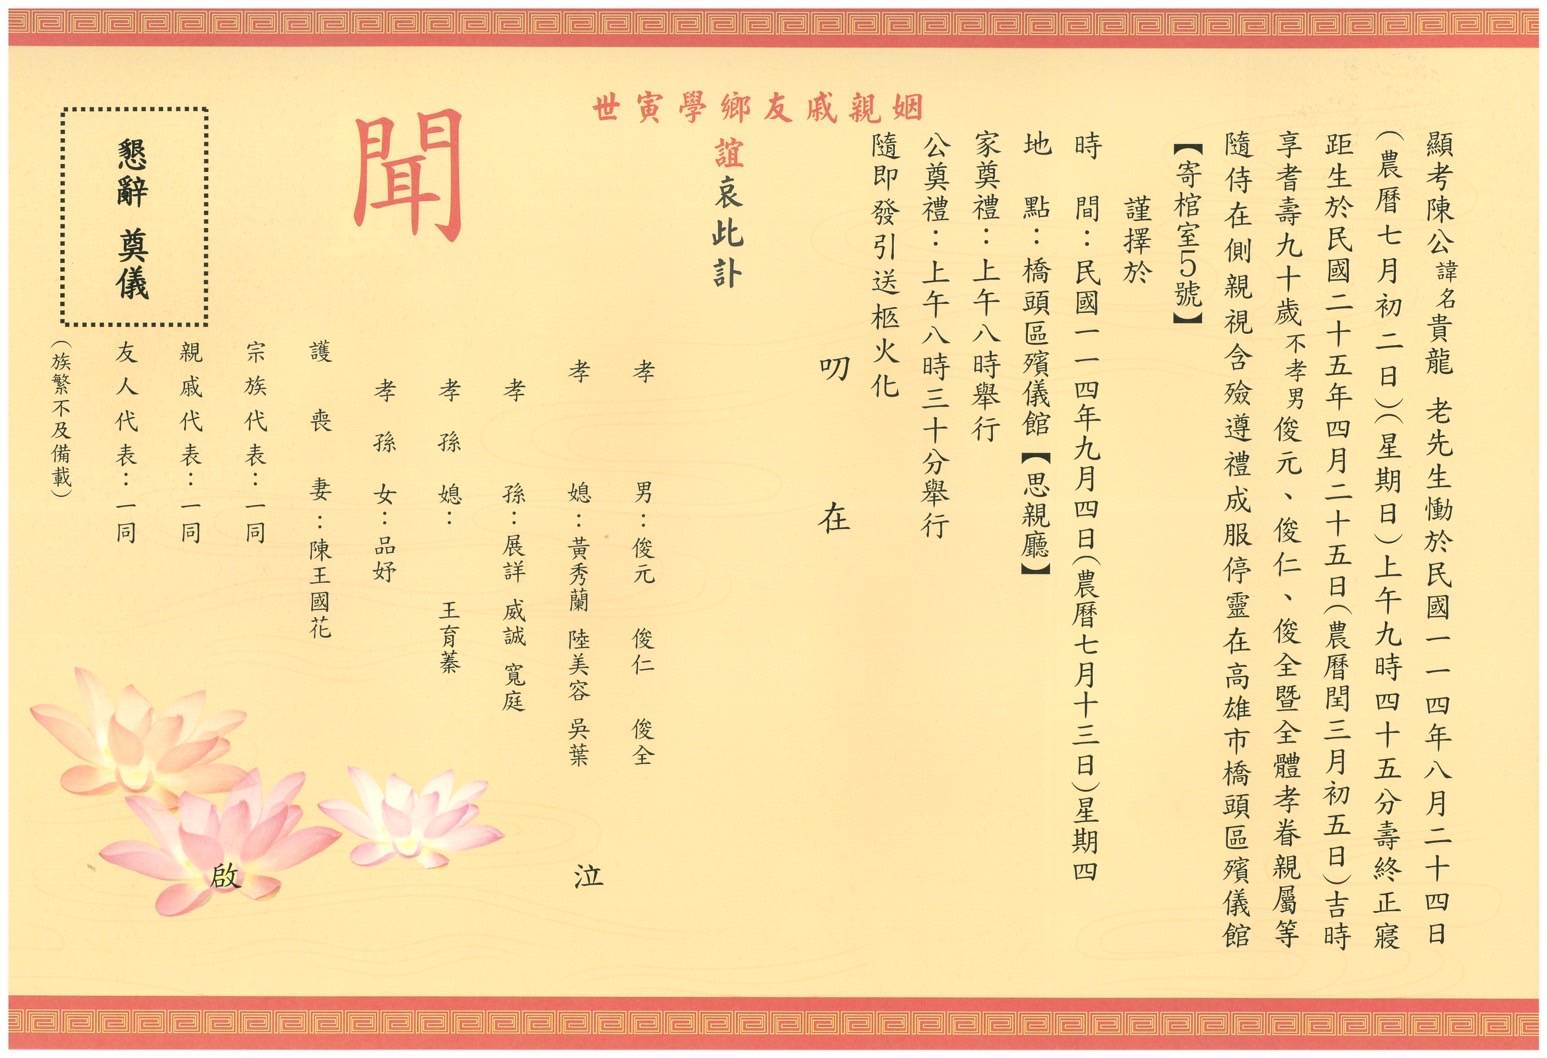 顯考陳公諱名貴龍 老先生慟於民國一一四年八月二十四日
(農曆七月初二日)(星期日)上午九時四十五分壽終正寢
距生於民國二十五年四月二十五日(農曆閏三月初五日)吉時
享耆壽九十歲不孝男俊元、俊仁、俊全暨全體孝眷親屬等
隨侍在側親視含殮遵禮成服停靈在高雄市橋頭區殯儀館
【寄棺室5號】
謹擇於
時 間：民國一一四年九月四日(農曆七月十三日)星期四
地 點：橋頭區殯儀館【思親廳】
家奠禮：上午八時舉行
公奠禮：上午八時三十分舉行
隨即發引送柩火化
叨 在
姻親戚友鄉學寅世
誼哀此訃
聞
孝 男：俊元 俊仁 俊全
孝 媳：黃秀蘭 陸美容 吳葉
孝 孫：展詳 威誠 寬庭
孝 孫 媳： 王育蓁
孝 孫 女：品妤
泣
護 喪 妻：陳王國花
宗族代表：一同
親戚代表：一同
友人代表：一同
(族繁不及備載)
啟
懇辭 奠儀